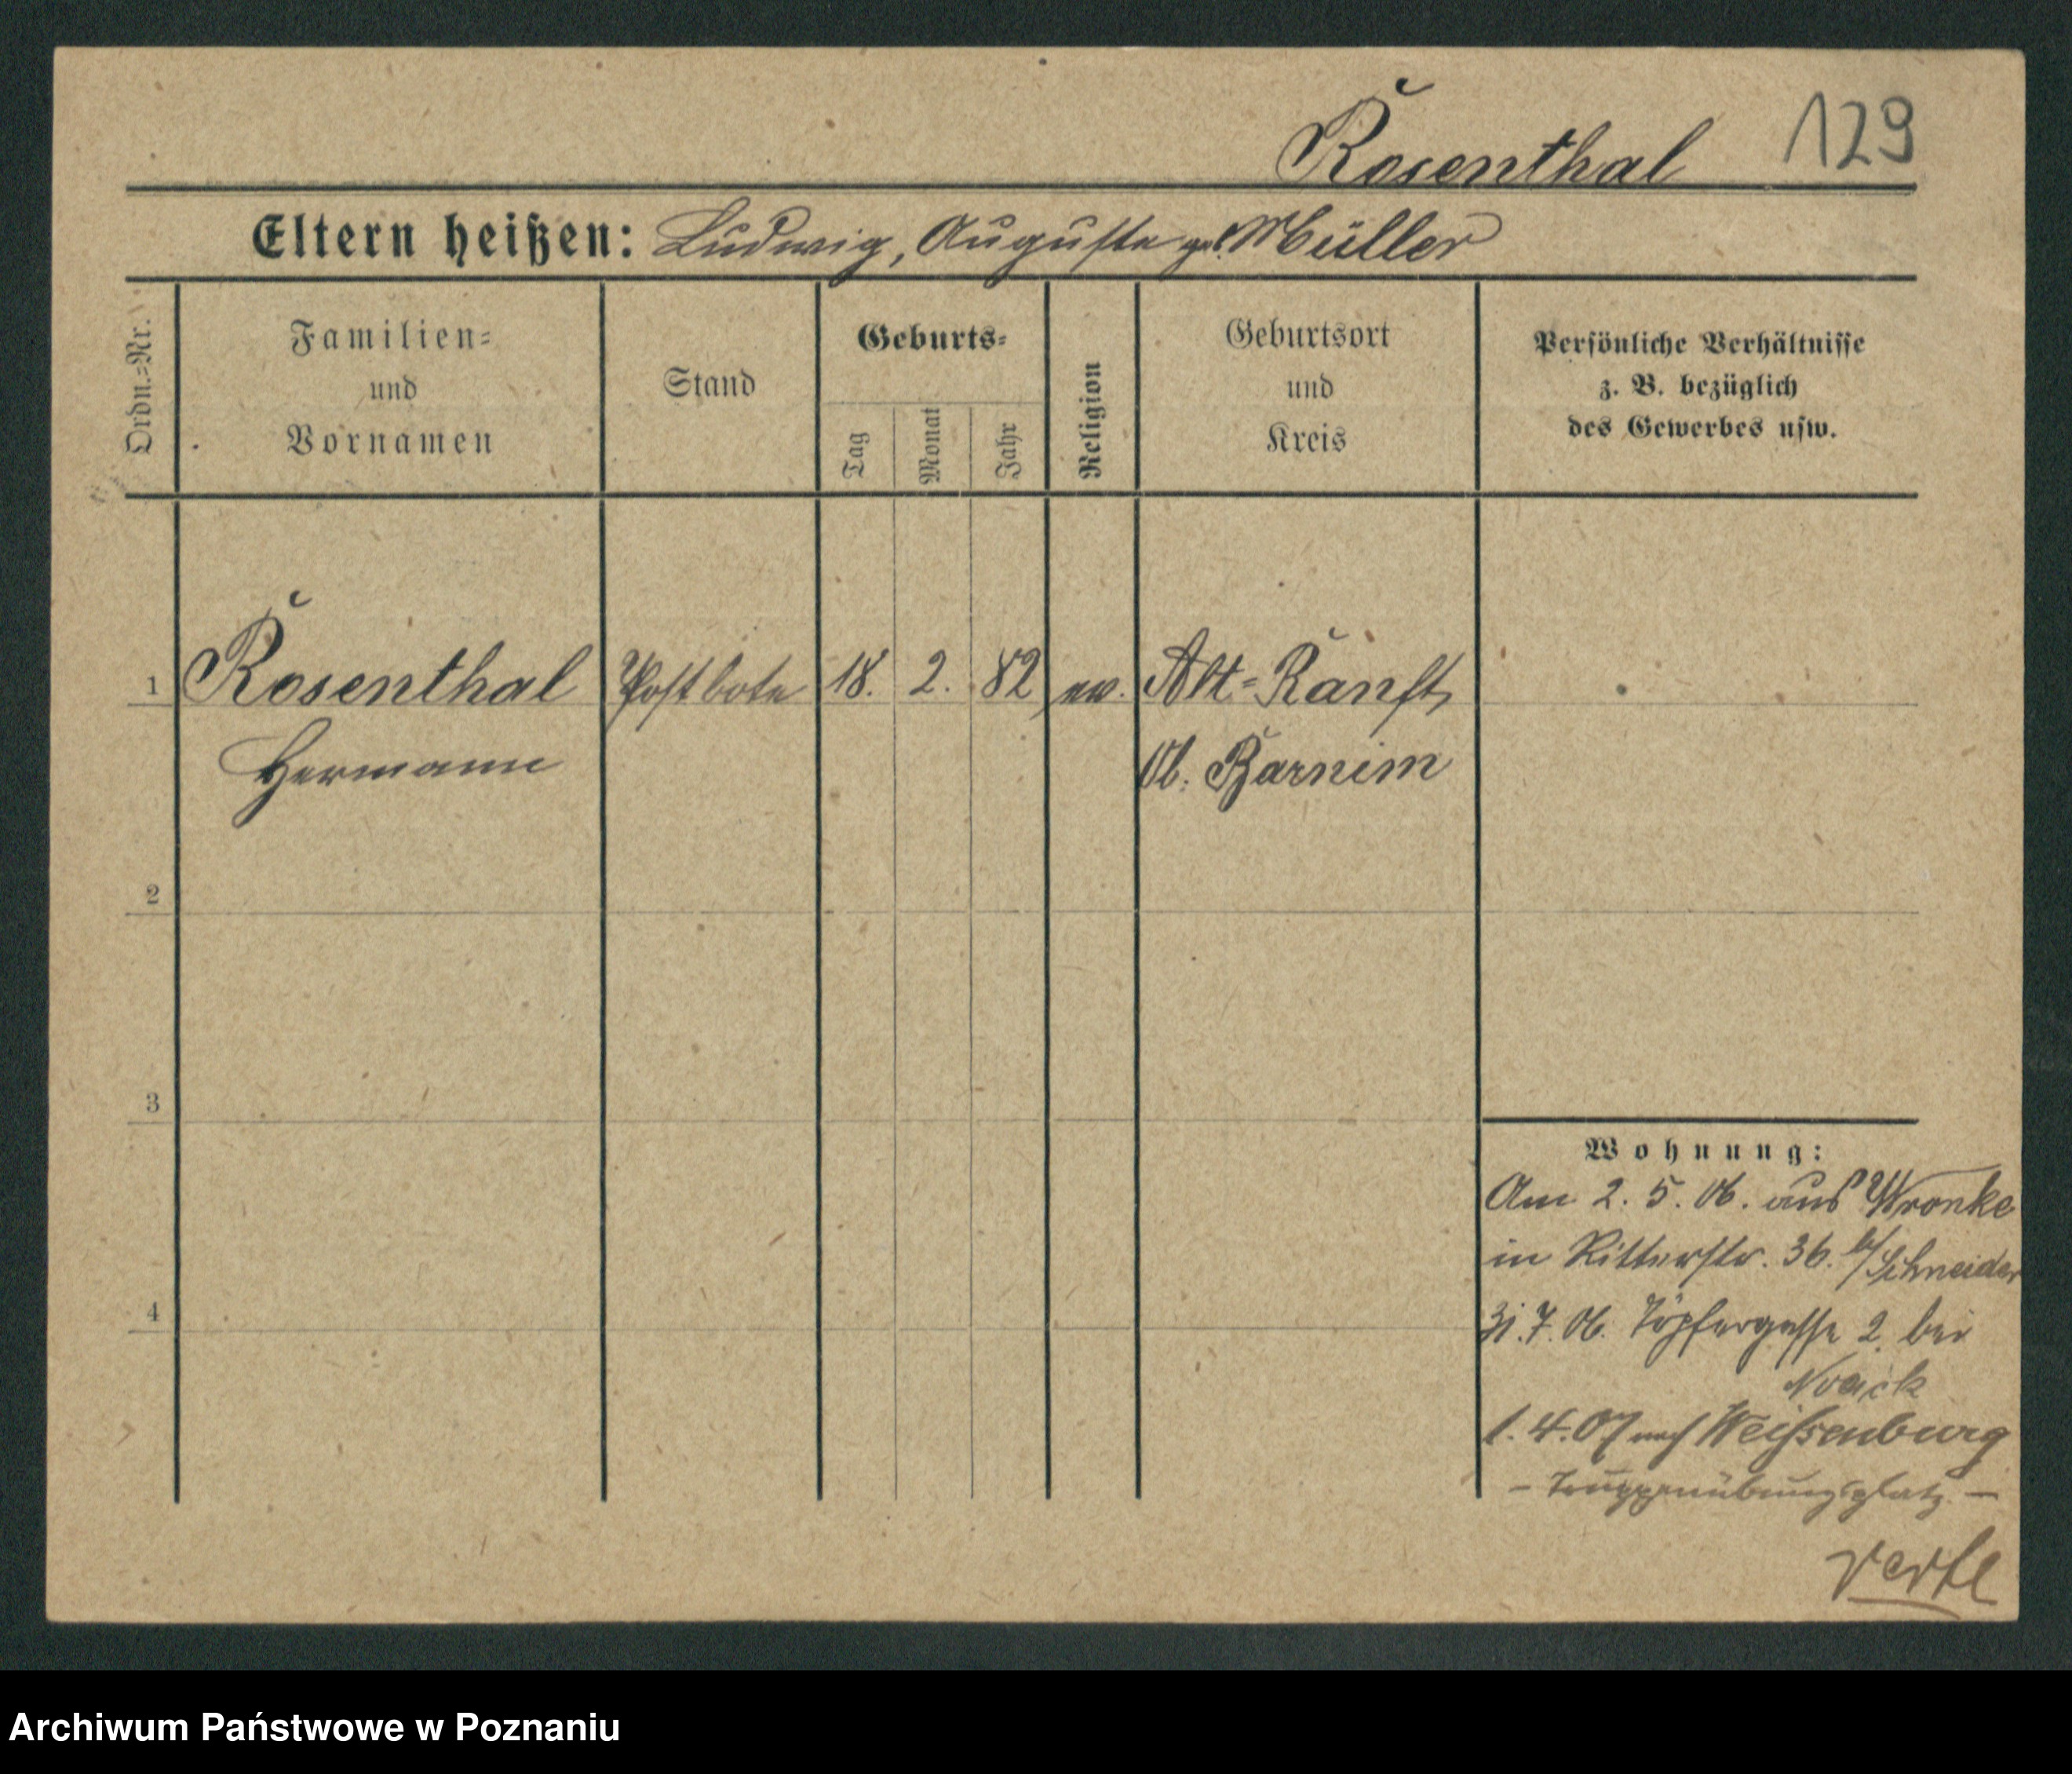 Rosenthal 129
Eltern heißen: Ludwig, Auguste geb. Müller
Ordn.=Nr.
Familien=
und
Vornamen
Stand
Geburts=
Tag
Monat
Jahr
Religion
Geburtsort
und
Kreis
Persönliche Verhältnisse
z. B. bezüglich
des Gewerbes usw.
1 Rosenthal Postbote 18. 2. 82 ev. Alt-Ranft,
Hermann Ob. Barnim
2
3
4
Wohnung:
Am 2. 5. 06. aus Wronke
in Ritterstr. 36. b/Schneider
31. 7. 06. Töpfergasse 2. bei
Noack
1. 4. 07 nach Weißenburg
- Truppenübungsplatz -
Archiwum Państwowe w Poznaniu